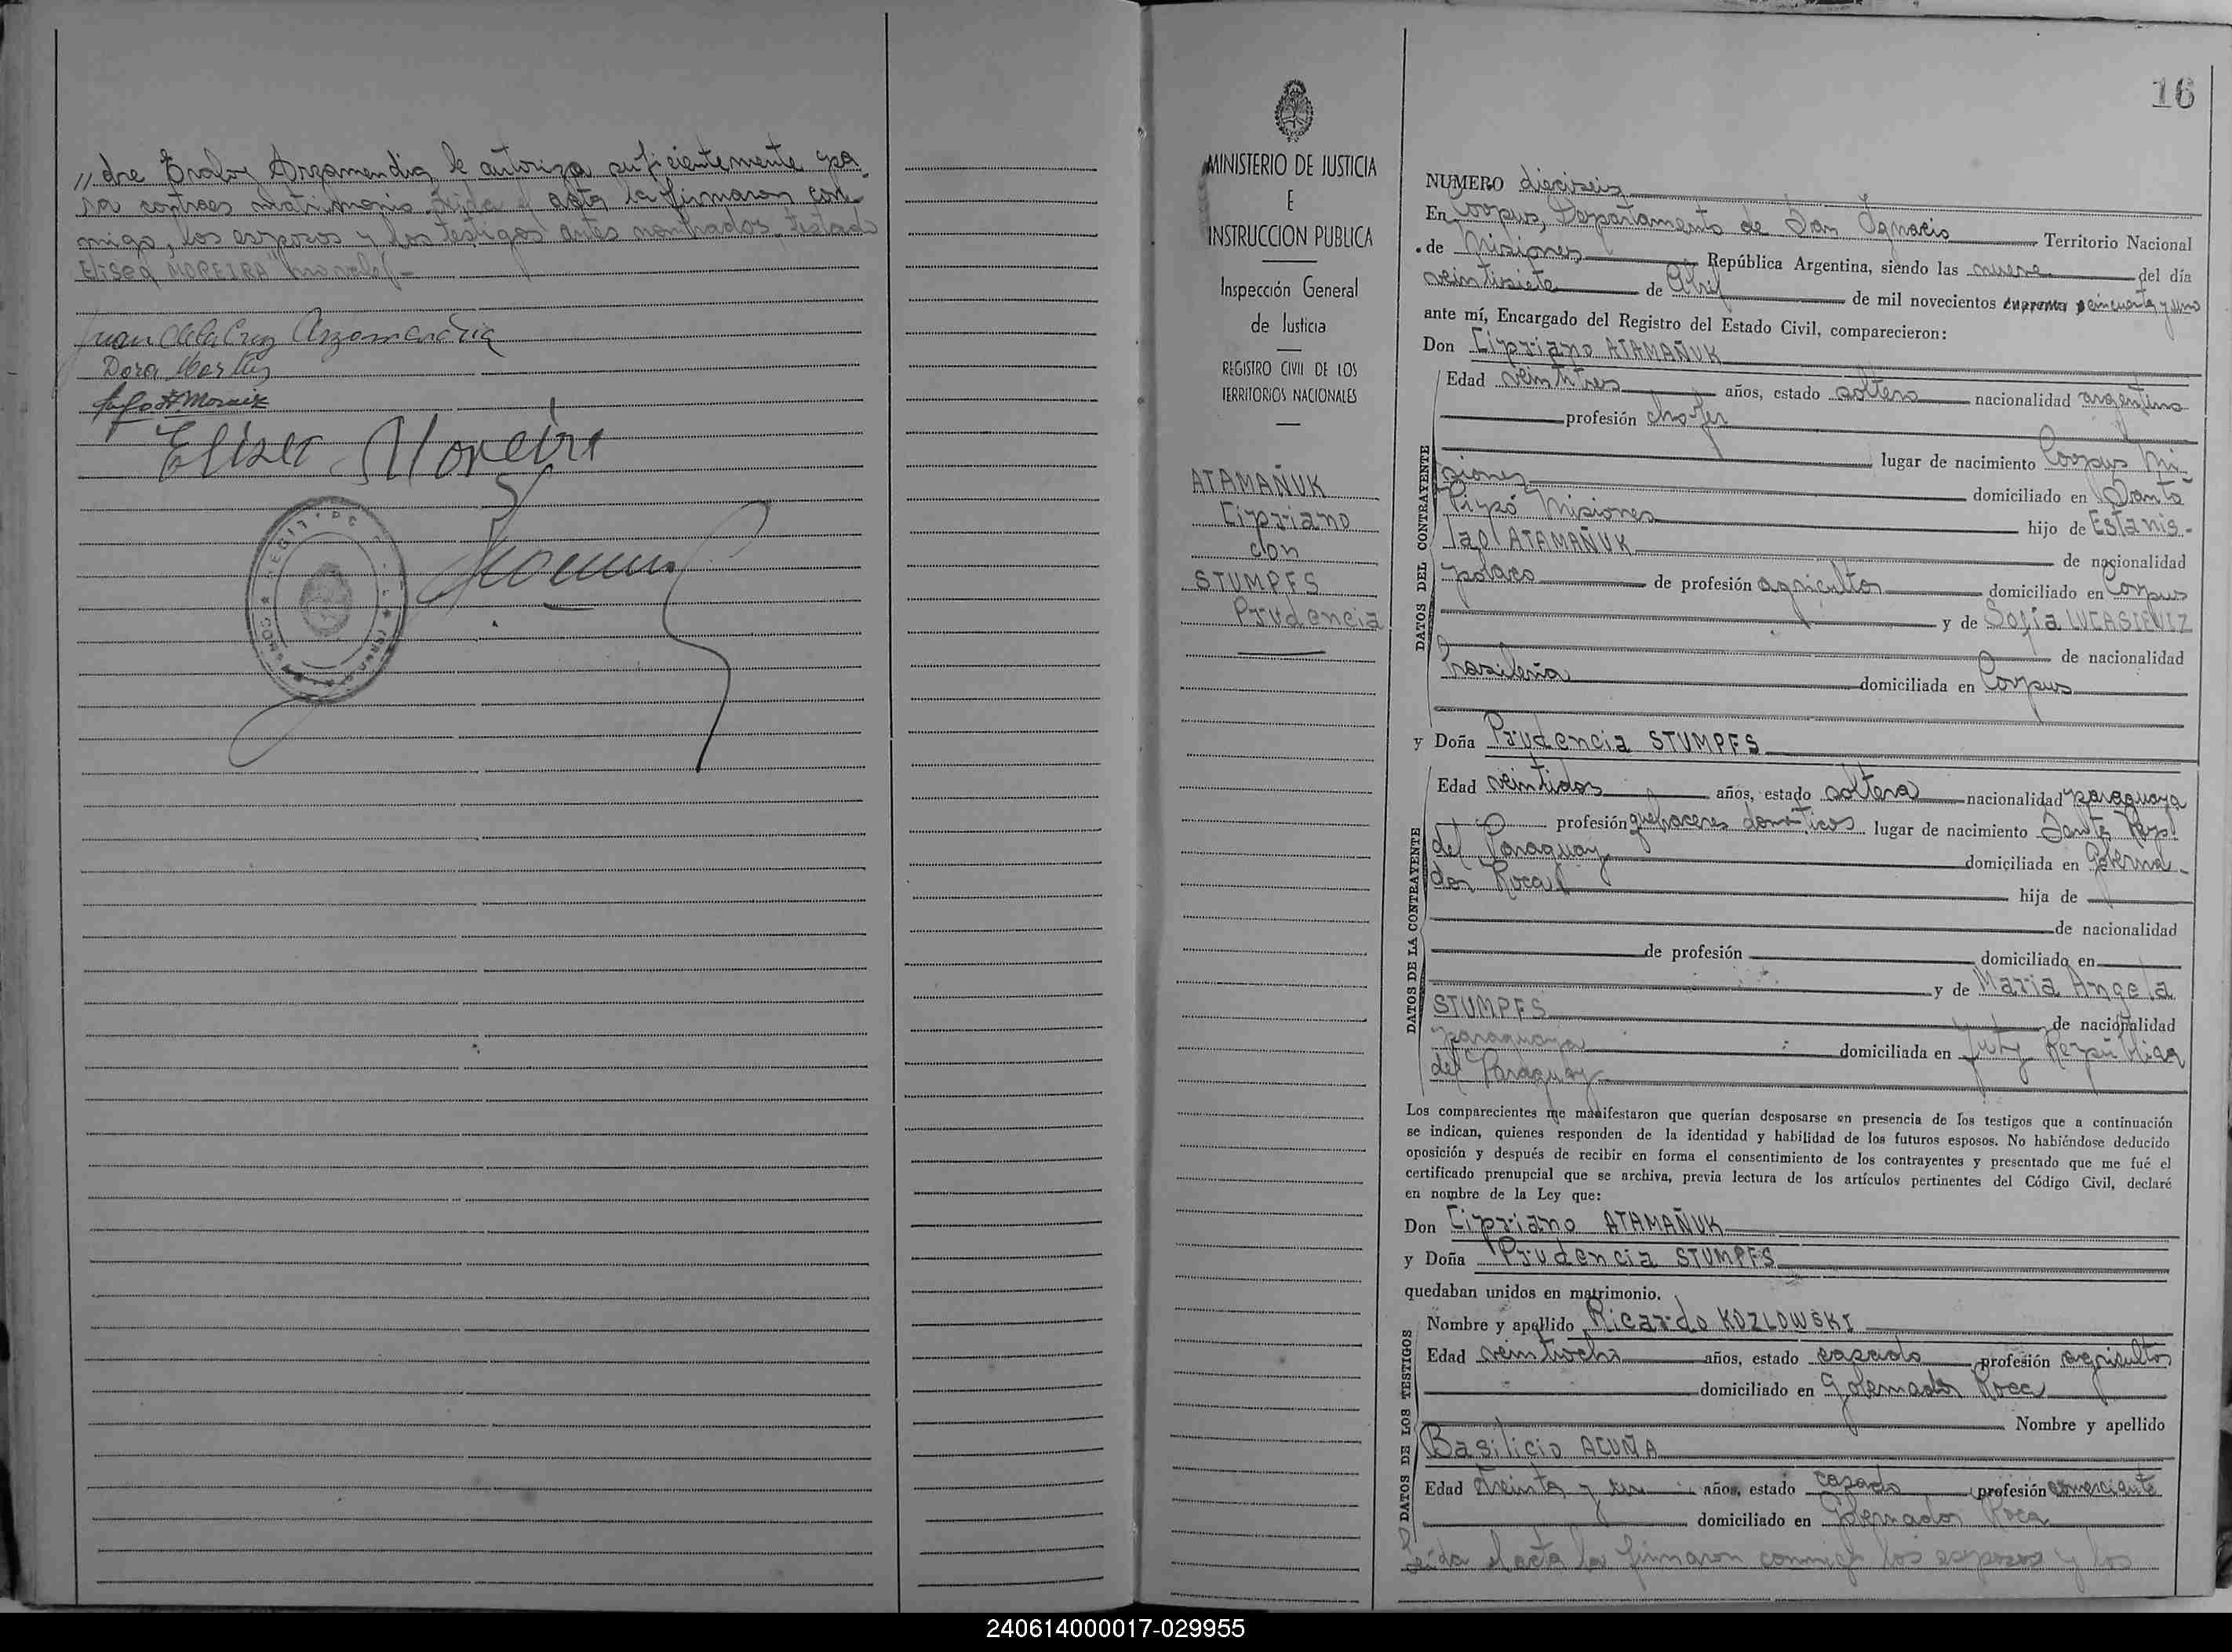 // dre Eraloy Arzamendia, le autoriza suficientemente pa-
ra contraer matrimonio. Leída el acta la firmaron con-
migo, los esposos y los testigos antes nombrados. Testado
Eliseo MOREIRA
Juan de la Cruz Arzamendia
Dora
Eliseo Moreira
16
MINISTERIO DE JUSTICIA
E
INSTRUCCION PUBLICA
Inspección General
de Justicia
REGISTRO CIVIL DE LOS
TERRITORIOS NACIONALES
ATAMAÑUK
Cipriano
con
STUMPFS
Prudencia
NUMERO dieciseis
En Corpus, Departamento de San Ignacio Territorio Nacional
de Misiones República Argentina, siendo las nueve del día
veintisiete de Abril de mil novecientos cuarenta y cincuenta y uno
ante mí, Encargado del Registro del Estado Civil, comparecieron:
Don Cipriano ATAMAÑUK
DATOS DEL CONTRAYENTE
Edad veintitres años, estado soltero nacionalidad argentino
profesión chofer
lugar de nacimiento Corpus Mi-
siones domiciliado en Santo
Pipó Misiones hijo de Estanis-
lao ATAMAÑUK de nacionalidad
polaco de profesión agricultor domiciliado en Corpus
y de Sofía LUCASIEVIZ
de nacionalidad
brasileña domiciliada en Corpus
y Doña Prudencia STUMPFS
DATOS DE LA CONTRAYENTE
Edad veintidos años, estado soltera nacionalidad paraguaya
profesión quehaceres domésticos lugar de nacimiento
del Paraguay domiciliada en Goberna-
dor Roca hija de
de nacionalidad
de profesión domiciliado en
y de Maria Angela
STUMPFS de nacionalidad
paraguaya domiciliada en Yuty República
del Paraguay
Los comparecientes me manifestaron que querían desposarse en presencia de los testigos que a continuación
se indican, quienes responden de la identidad y habilidad de los futuros esposos. No habiéndose deducido
oposición y después de recibir en forma el consentimiento de los contrayentes y presentado que me fué el
certificado prenupcial que se archiva, previa lectura de los artículos pertinentes del Código Civil, declaré
en nombre de la Ley que:
Don Cipriano ATAMAÑUK
y Doña Prudencia STUMPFS
quedaban unidos en matrimonio.
DATOS DE LOS TESTIGOS
Nombre y apellido Ricardo KOZLOWSKI
Edad veintiocho años, estado casado profesión agricultor
domiciliado en Gobernador Roca
Nombre y apellido
Basilicio ACUÑA
Edad treinta y años, estado casado profesión comerciante
domiciliado en Gobernador Roca
Leída el acta la firmaron conmigo los esposos y los
240614000017-029955